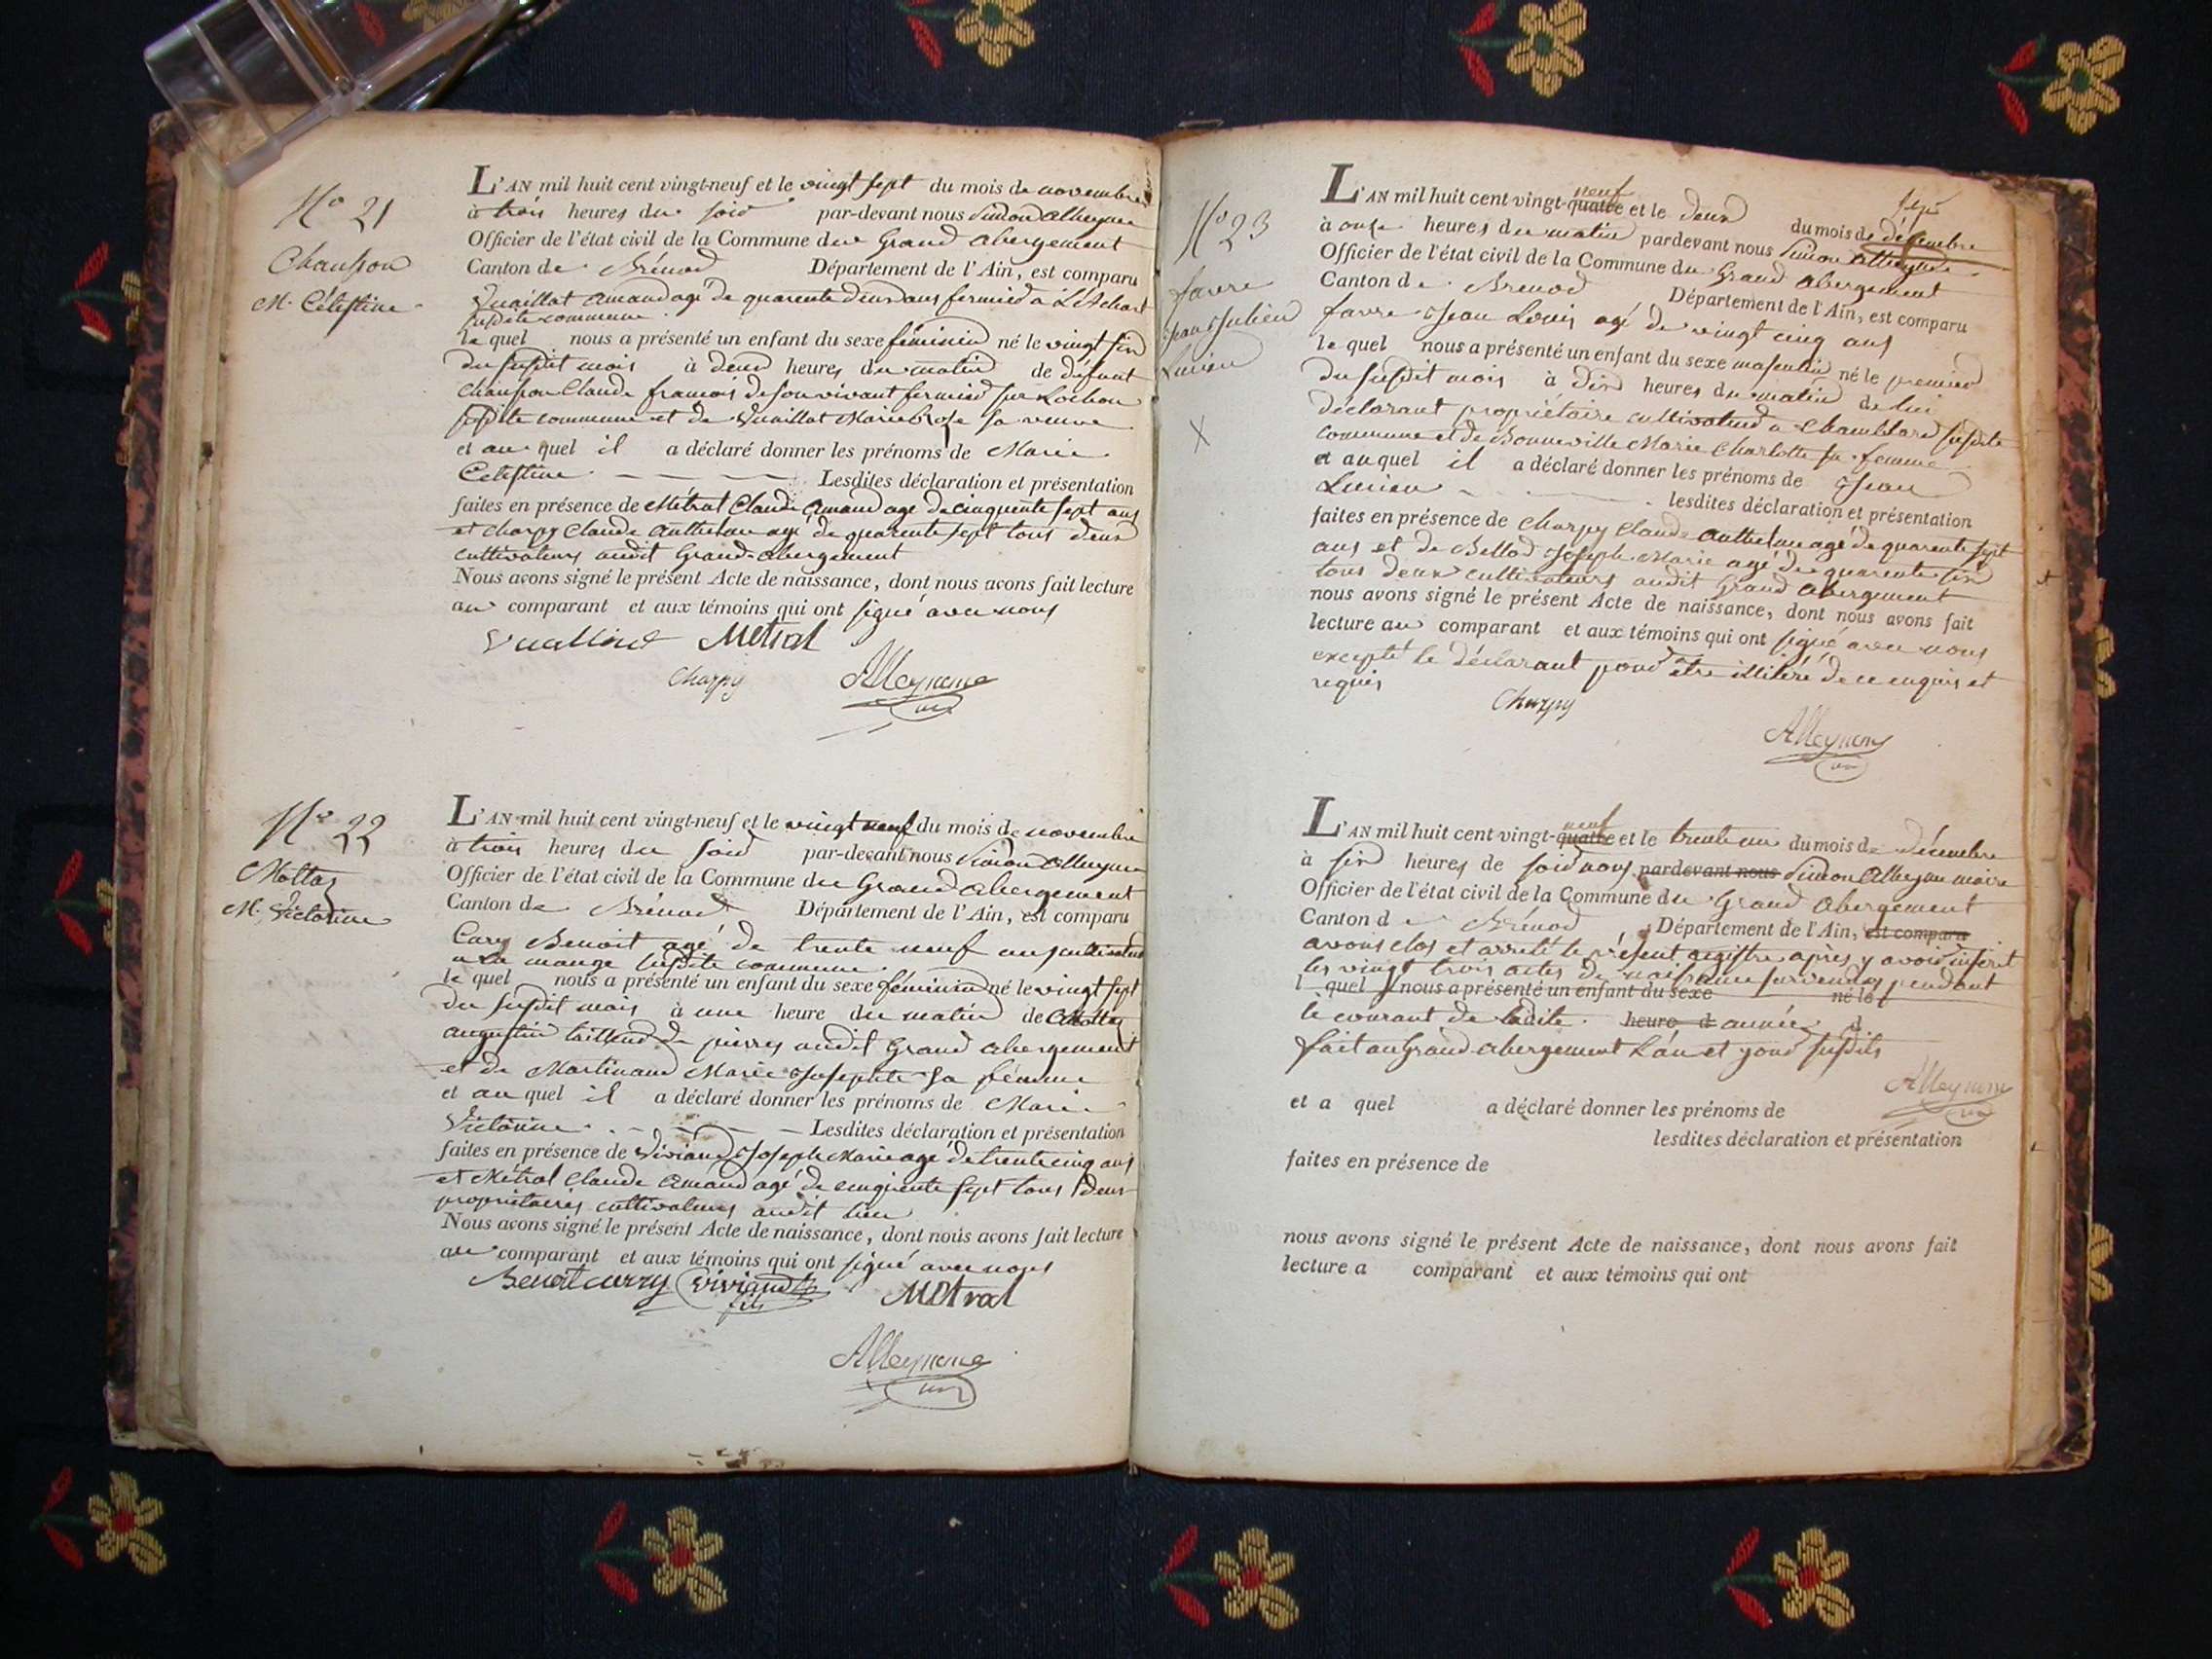 No 21
Chanson
M. Célestine
L'AN mil huit cent vingt-neuf et le vingt sept du mois de novembre
à trois heures du soir par-devant nous Simon Alleyme
Officier de l'état civil de la Commune du Grand abergement
Canton de Brénod Département de l'Ain, est comparu
Vuaillat amand agé de quarente deux ans fermier a
susdite commune
le quel nous a présenté un enfant du sexe féminin né le vingt six
du susdit mois à deux heures du matin de défunt
Chanson Claude francois de son vivant fermier sur Lochou
susdite commune et de Vuaillat Marie Rose sa veuve
et au quel il a déclaré donner les prénoms de Marie
Célestine Lesdites déclaration et présentation
faites en présence de Métral Claude Amand agé de cinquente sept ans
et Charpy Claude Anthelme agé de quarente sept tous deux
cultivateurs audit Grand-abergement
Nous avons signé le présent Acte de naissance, dont nous avons fait lecture
au comparant et aux témoins qui ont signé avec nous
Vuaillat Métral
Charpy Alleyme
No 22
Mottaz
M. Victorine
L'AN mil huit cent vingt-neuf et le vingt neuf du mois de novembre
à trois heures du soir par-devant nous Simon Alleyme
Officier de l'état civil de la Commune du Grand abergement
Canton de Brénod Département de l'Ain, est comparu
Cury Benoit agé de trente neuf ans cultivateur
a La mange susdite commune
le quel nous a présenté un enfant du sexe féminin né le vingt sept
du susdit mois à une heure du matin de Mottaz
augustin tailleur de pierres audit Grand abergement
et de Martinand Marie Josephte sa femme
et au quel il a déclaré donner les prénoms de Marie
Victorine Lesdites déclaration et présentation
faites en présence de Viviand Joseph Marie agé de trente cinq ans
et Métral Claude Amand agé de cinquente sept tous deux
propriétaires cultivateurs audit lieu
Nous avons signé le présent Acte de naissance, dont nous avons fait lecture
au comparant et aux témoins qui ont signé avec nous
Benoit curry Viviand fils Métral
Alleyme
No 23
favre
Jean Julien
Lucien
X
L'AN mil huit cent vingt-quatre neuf et le deux du mois de décembre
à onze heures du matin pardevant nous Simon Alleyme
Officier de l'état civil de la Commune du Grand abergement
Canton de Brenod Département de l'Ain, est comparu
favre Jean Louis agé de vingt cinq ans
le quel nous a présenté un enfant du sexe masculin né le premier
du susdit mois à dix heures du matin de lui
déclarant propriétaire cultivateur a susdite
commune et de Bonneville Marie Charlotte sa femme
et auquel il a déclaré donner les prénoms de Jean
Lucien lesdites déclaration et présentation
faites en présence de Charpy Claude Anthelme agé de quarente sept
ans et de Bellod Joseph Marie agé de quarente six
tous deux cultivateurs audit Grand abergement
nous avons signé le présent Acte de naissance, dont nous avons fait
lecture au comparant et aux témoins qui ont signé avec nous
excepté le déclarant pour être illitéré de ce enquis et
requis
Charpy
Alleyme
L'AN mil huit cent vingt-quatre neuf et le trente un du mois de décembre
à six heures de soir nous pardevant nous Simon Alleyme maire
Officier de l'état civil de la Commune du Grand abergement
Canton de Brénod Département de l'Ain, est comparu
avons clos et arreté le présent registre après y avoir inserit
les vingt trois actes de naissance survenus pendant
l quel nous a présenté un enfant du sexe né le
le courant de ladite heure d année d
fait au Grand abergement L'an et jour susdits
Alleyme
et a quel a déclaré donner les prénoms de
lesdites déclaration et présentation
faites en présence de
nous avons signé le présent Acte de naissance, dont nous avons fait
lecture a comparant et aux témoins qui ont